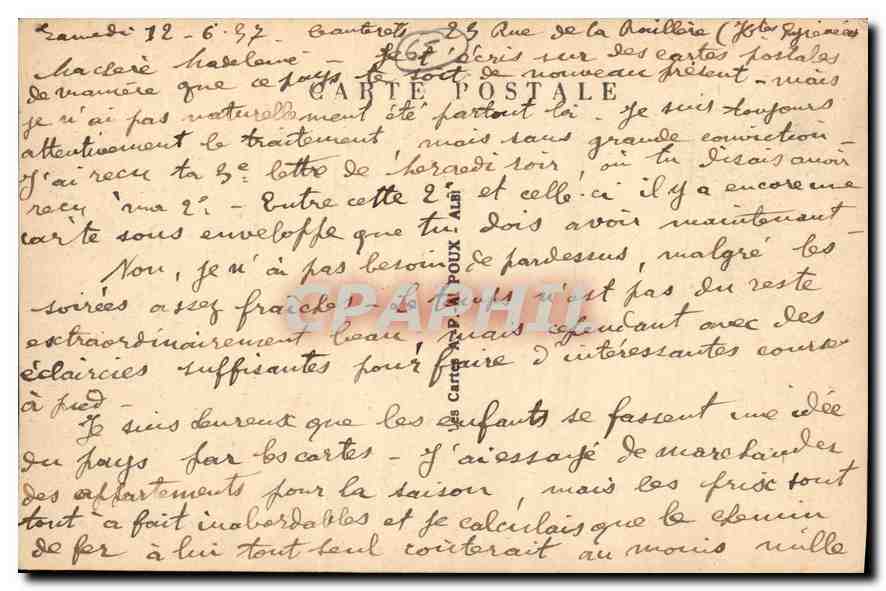 Samedi 12-6-37 Cauterets 23 Rue de la Raillère (Htes Pyrénées)
65
Ma chère Madeleine - Je t'écris sur des cartes postales
de manière que ce pays te soit de nouveau présent - mais
CARTE POSTALE
je n'ai pas naturellement été partout ici. Je suis toujours
attentivement le traitement, mais sans grande conviction -
J'ai reçu ta 3e lettre de Mercredi soir, où tu disais avoir
reçu ma 2e - Entre cette 2e et celle-ci il y a encore une
carte sous enveloppe que tu dois avoir maintenant -
Non, je n'ai pas besoin de pardessus, malgré les
soirées assez fraîches - Le temps n'est pas du reste
extraordinairement beau, mais cependant avec des
éclaircies suffisantes pour faire d'intéressantes courses
à pied -
Je suis heureux que les enfants se fassent une idée
du pays par les cartes - J'ai essayé de marchander
des appartements pour la saison, mais les prix sont
tout à fait inabordables et je calculais que le chemin
de fer à lui tout seul coûterait au moins mille
Les Cartes A.-P.-A. POUX - ALBI
CPAPHIL